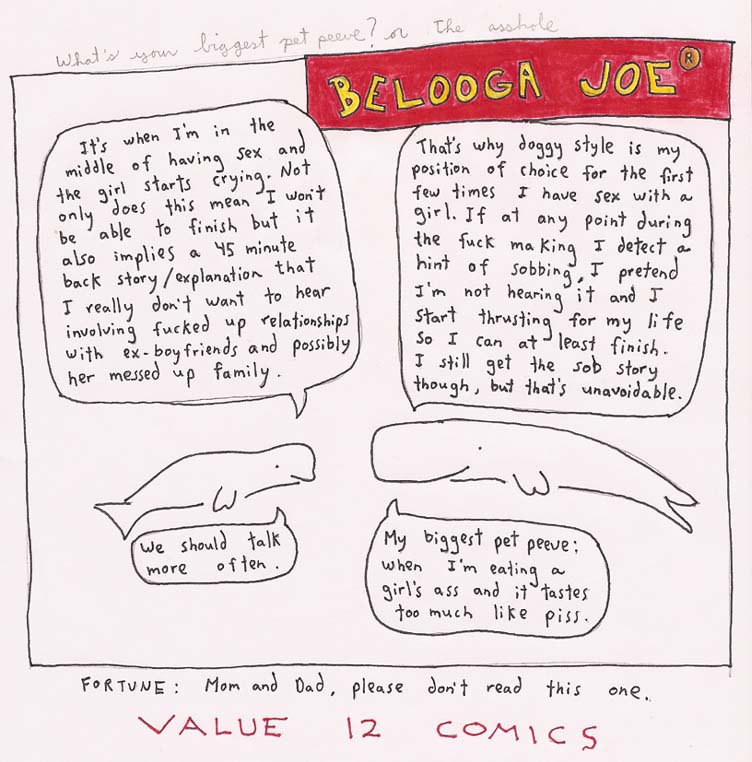 What's your biggest pet peeve? or The asshole
BELOOGA JOE®
It's when I'm in the
middle of having sex and
the girl starts crying. Not
only does this mean I won't
be able to finish but it
also implies a 45 minute
back story/explanation that
I really don't want to hear
involving fucked up relationships
with ex-boyfriends and possibly
her messed up family.
That's why doggy style is my
position of choice for the first
few times I have sex with a
girl. If at any point during
the fuck making I detect a
hint of sobbing, I pretend
I'm not hearing it and I
start thrusting for my life
so I can at least finish.
I still get the sob story
though, but that's unavoidable.
We should talk
more often.
My biggest pet peeve:
when I'm eating a
girl's ass and it tastes
too much like piss.
FORTUNE: Mom and Dad, please don't read this one.
VALUE 12 COMICS